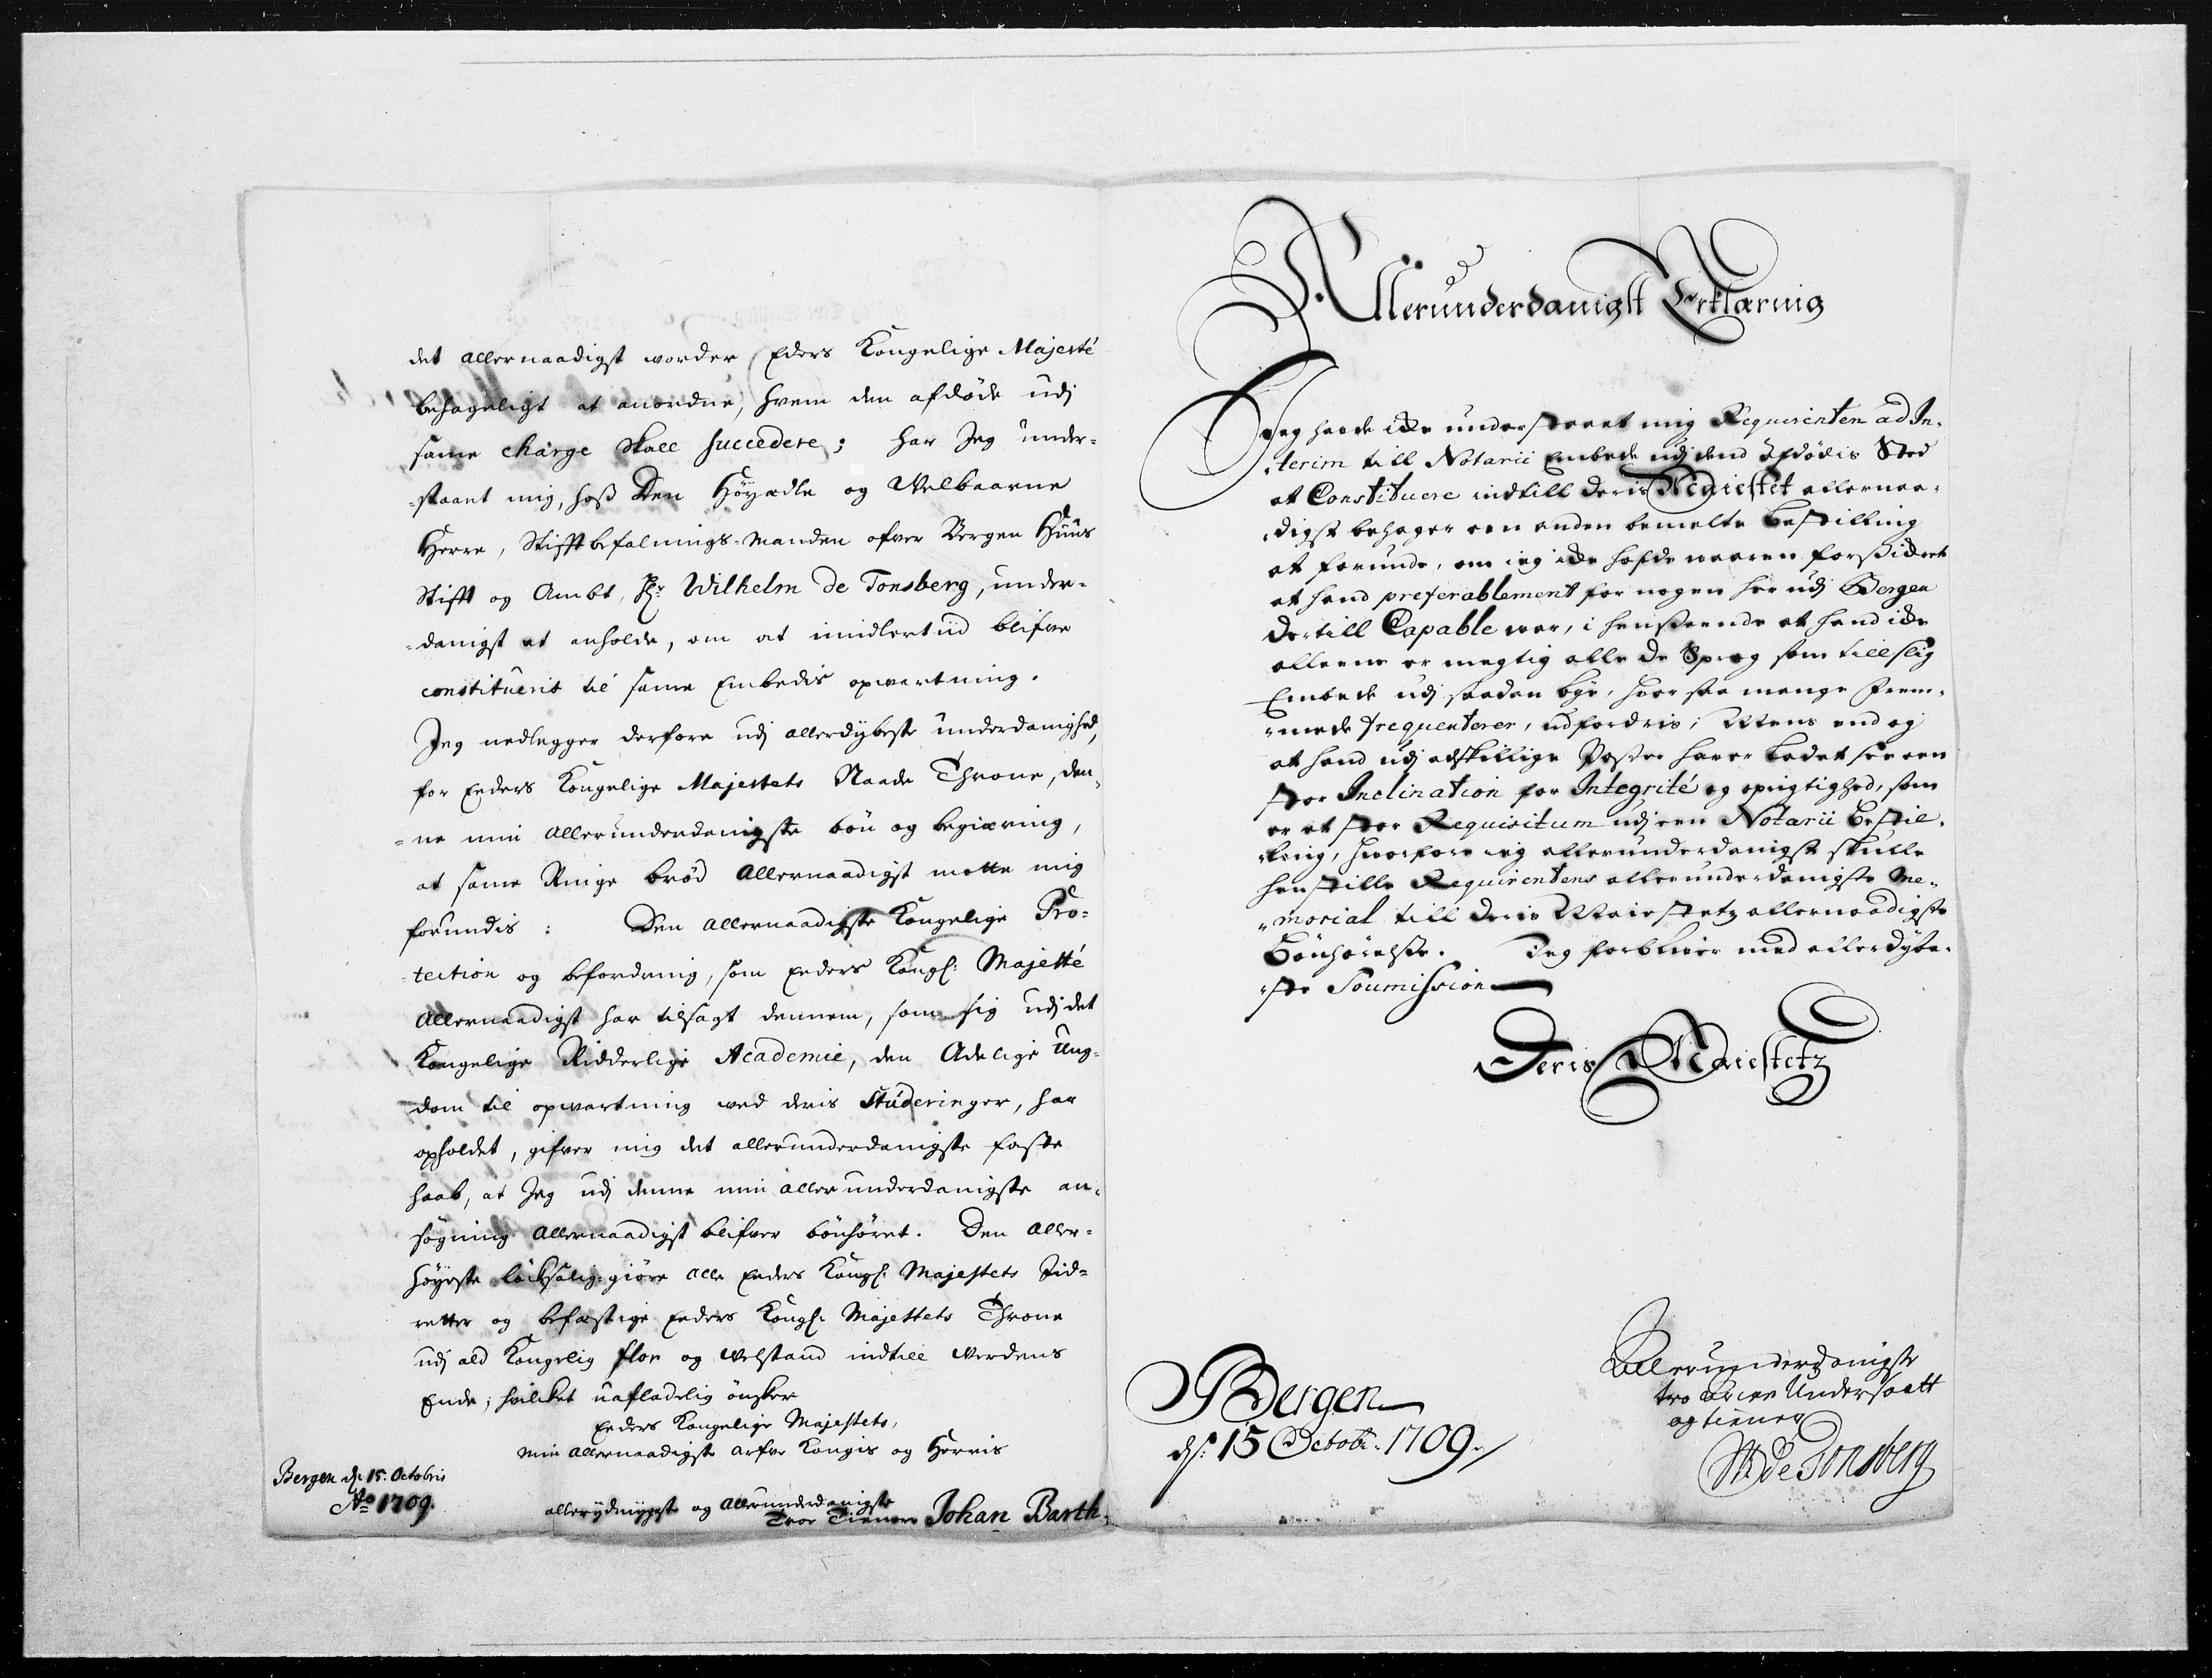 det allernaadigst worder Eders Kongelige Majesté
behageligt at anordne, hvem den afdöde udj
same charge skall succedere; har Jeg under-
-staaet mig, hoss Den Höyædle og Velbaarne
Herre, Stifftbefalnings-Manden ofver Bergen Huus
Stifft og Ambt, Hr: Wilhelm de Tonsberg, under-
-danigst at anholde, om at imidlertiid blifve
constituerit til same Embedis opvartning.
Jeg nedlegger derfore udj allerdybeste underdanighed,
for Eeders Kongelige Majestets Naade Throne, den-
-ne min allerunderdanigste bön og begiæring,
at same Ringe bröd allernaadigst motte mig
forundis: Den allernaadigste Kongelige Pro-
tection og befordring, som Eeders Kongl: Majesté
Allernaadigst har tilsagt dennem, som sig udj det
Kongelige Ridderlige Academie, den Adelige Ung-
dom til opvartning ved deris Studeringer, har
opholdet, gifver mig det allerunderdanigste faste
haab, at Jeg udj denne min allerunderdanigste an-
søgning allernaadigst blifver bönhöret. Den aller-
höyeste löcksalig-giöre alle Eeders Kongl: Majestets Jid-
retter og befæstige Eeders Kongl: Majestets Throne
udj ald Kongelig flor og Velstand indtill Verdens
Ende; hvilcket uafladelig önsker
Eeders Kongelige Majestets,
min allernaadigste arfve Kongis og Herris
Bergen d: 15. Octobris
Ao 1709.
allerydmygste og allerunderdanigste
Troe Tienere Johan Barth.
Allerunderdanigst Erklæring
Jeg hafde icke understaaet mig Requirenten ad In-
-terim till Notarii Embede udj dend Afdödis Sted
at Constituere indtill Deris Majestet allernaa-
-digst behager een anden bemelte bestilling
at forunde, om ieg icke hafde waaren forsickret
at hand preferablement for nogen her udj Bergen
dertill Capable war, i henseende at hand icke
alleene er megtig alle de Sprog som till slig
Embede udj saadan bye, hvor saa mange frem-
-mede frequenterer, udfordris; Mens end og
at hand udj adskillige Poster haver ladet see een
stor Inclination for Integrité og oprigtighed, som
er et stor Requisitum udj een Notarii bestil-
-ling, hvorfore ieg allerunderdanigst skulle
henstille Requirentens allerunderdanigste Me-
-morial till Deris Maiestetz allernaadigste
Bönhörelsse. Jeg forbliver med allerdybe-
-ste Soumission
Deris Maiestetz
Bergen
d: 15 Octobr: 1709.
Allerunderdanigste
tro Undersaatt
og tiener
W de Tonsberg